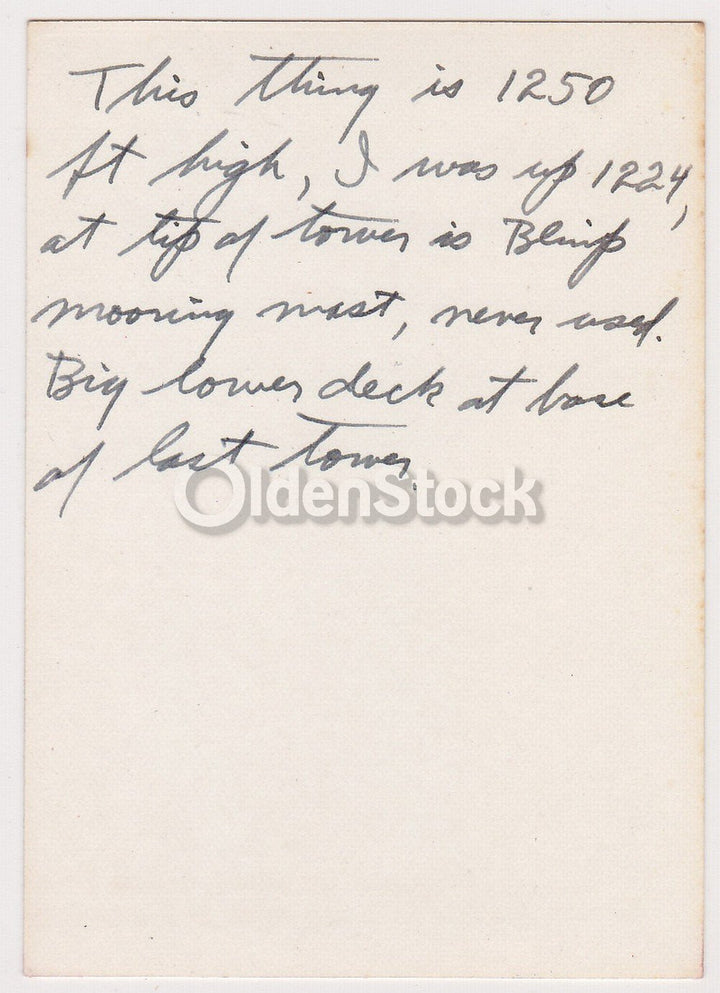 This thing is 1250
ft high, I was up 1224,
at tip of tower is Blimp
mooring mast, never used.
Big lower deck at base
of last tower.
OldenStock